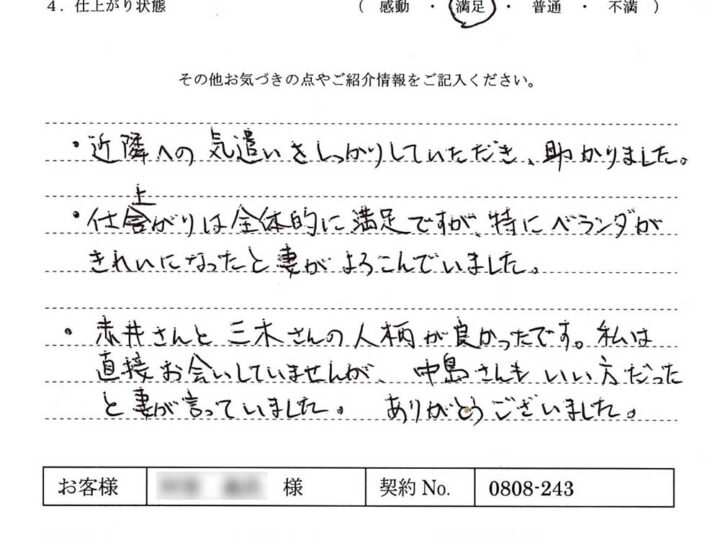 4．仕上がり状態　（ 感動 ・ 満足 ・ 普通 ・ 不満 ）
その他お気づきの点やご紹介情報をご記入ください。
・近隣への気遣いをしっかりしていただき、助かりました。
・仕上がりは全体的に満足ですが、特にベランダが
きれいになったと妻がよろこんでいました。
・赤井さんと三木さんの人柄が良かったです。私は
直接お会いしていませんが、中島さんもいい方だった
と妻が言っていました。 ありがとうございました。
お客様　様　契約 No.　0808-243